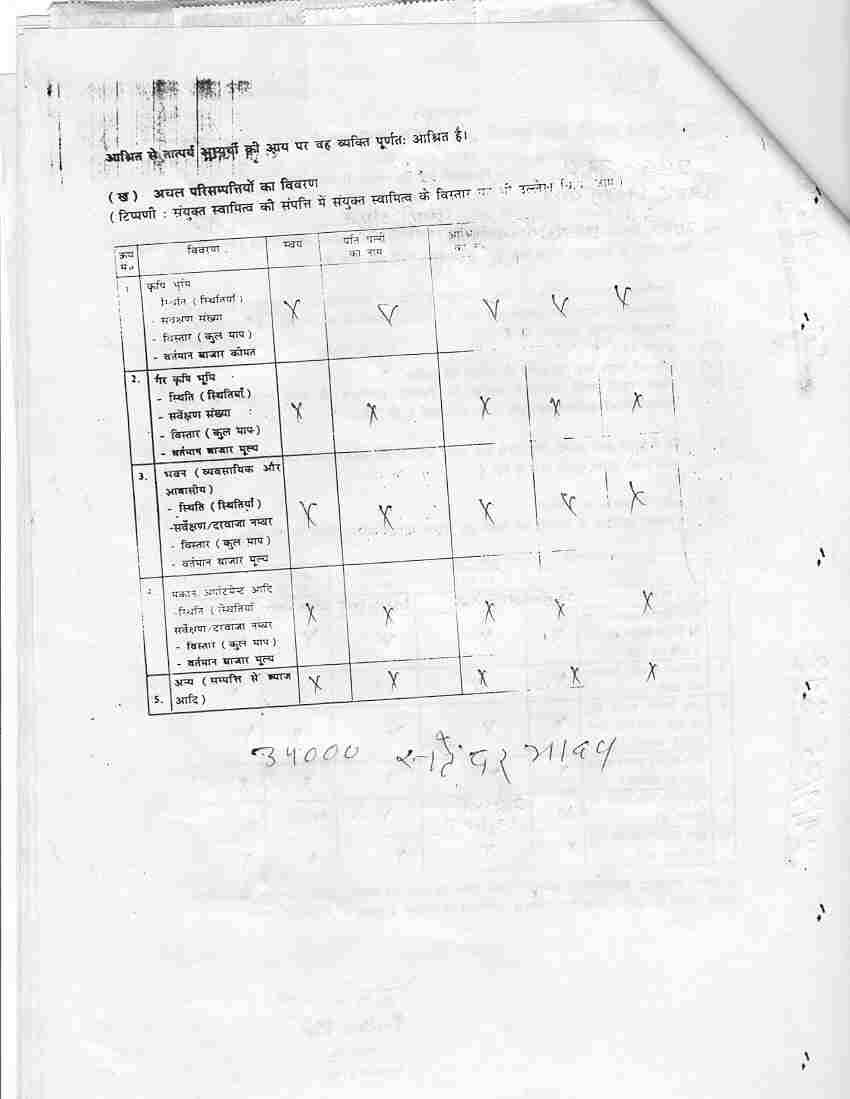 आश्रित से तात्पर्य अभ्यर्थी की आय पर वह व्यक्ति पूर्णतः आश्रित है।
(ख) अचल परिसम्पत्तियों का विवरण
(टिप्पणी : संयुक्त स्वामित्व की संपत्ति में संयुक्त स्वामित्व के विस्तार का भी उल्लेख किया जाए)
क्रम सं० विवरण स्वयं पति पत्नी
का नाम
1 कृषि भूमि
स्थिति (स्थितियाँ)
- सर्वेक्षण संख्या
- विस्तार (कुल माप)
- वर्तमान बाजार कीमत
X V V V V
2. गैर कृषि भूमि
- स्थिति (स्थितियाँ)
- सर्वेक्षण संख्या
- विस्तार (कुल माप)
- वर्तमान बाजार मूल्य
X X X X X
3. भवन (व्यवसायिक और
आवासीय)
- स्थिति (स्थितियाँ)
-सर्वेक्षण/दरवाजा नम्बर
- विस्तार (कुल माप)
- वर्तमान बाजार मूल्य
X X X X X
मकान अपार्टमेन्ट आदि
-स्थिति (स्थितियाँ
सर्वेक्षण/दरवाजा नम्बर
- विस्तार (कुल माप)
- वर्तमान बाजार मूल्य
X X X X X
5. अन्य (सम्पत्ति से ब्याज
आदि)
X X X X X